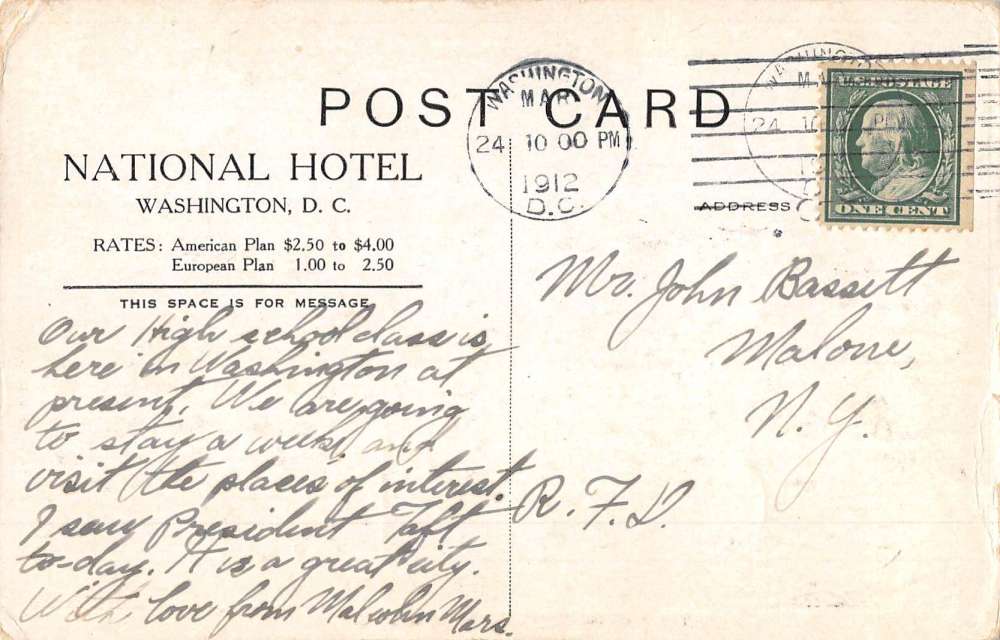 POST CARD
WASHINGTON
MAR
24 10 00 PM
1912
D.C.
WASHINGTON
24
U.S. POSTAGE
ONE CENT
NATIONAL HOTEL
WASHINGTON, D. C.
RATES: American Plan $2.50 to $4.00
European Plan 1.00 to 2.50
THIS SPACE IS FOR MESSAGE
ADDRESS
Our High school class is
here in Washington at
present. We are going
to stay a week and
visit the places of interest.
I saw President Taft
to-day. It is a great city.
With love from Malcolm Mars.
Mr. John Bassett
Malone,
N. Y.
R. F. D.